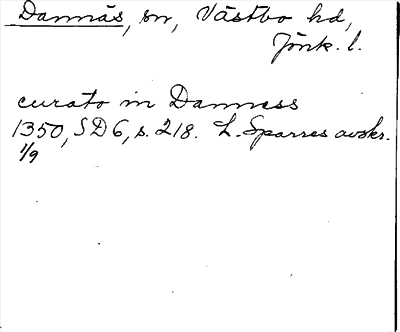 Dannäs, sn, Västbo hd,
Jönk. l.
curato in Danness
1350, SD 6, s. 218. L. Sparres avskr.
1/9